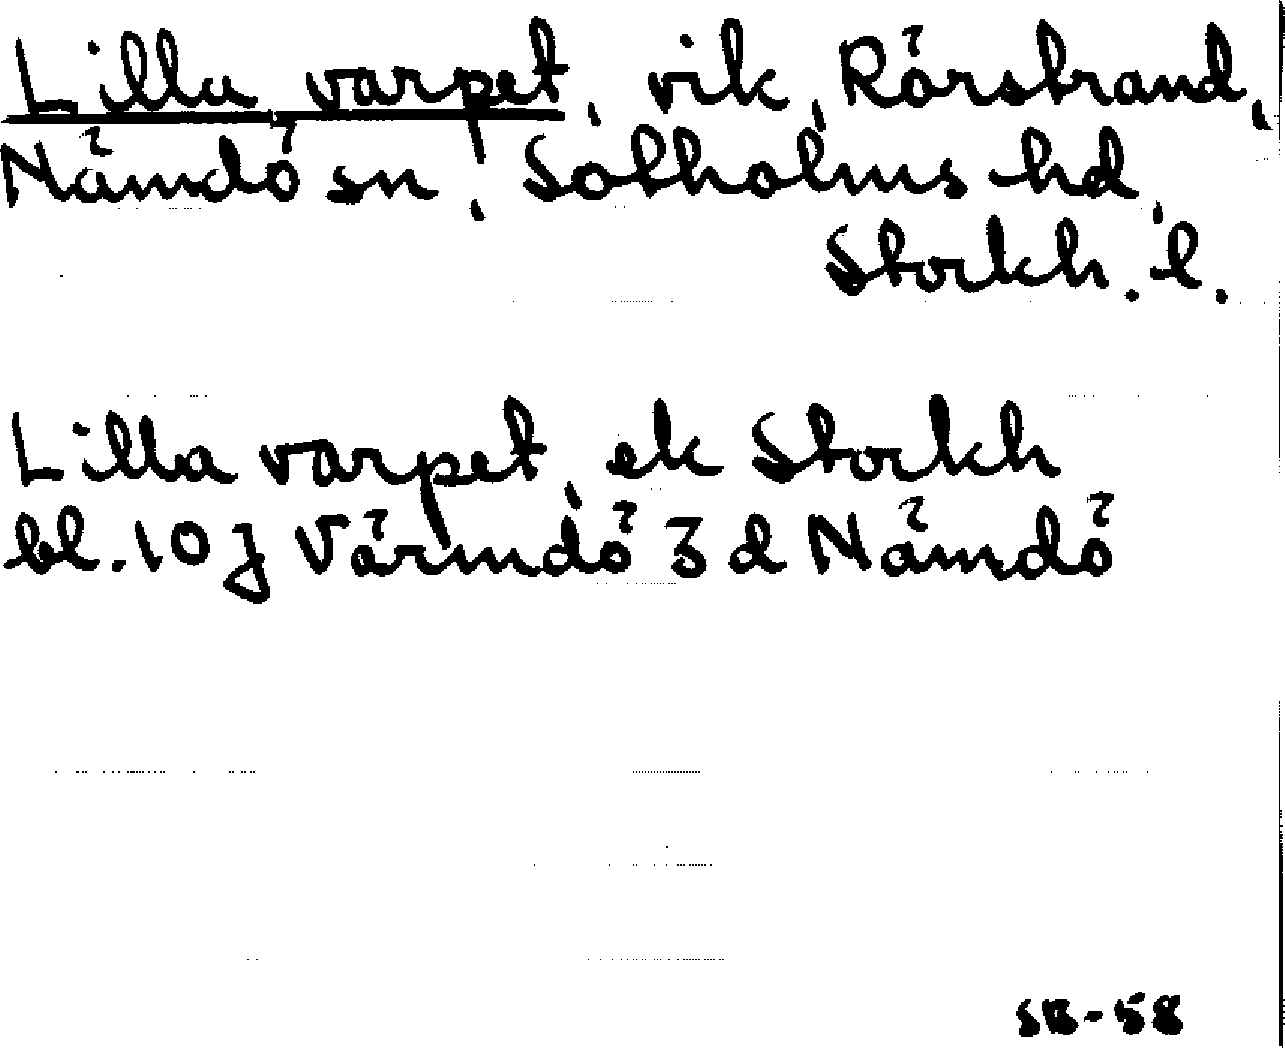 Lilla varpet, vik, Rörstrand,
Nämdö sn, Sotholms hd,
Stockh. l.
Lilla varpet, ek Stockh
bl. 10 j Värmdö 3 d Nämdö
SB-58